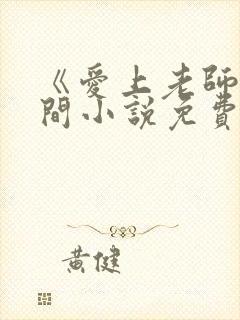 《愛上老師
間小說免費
黃健